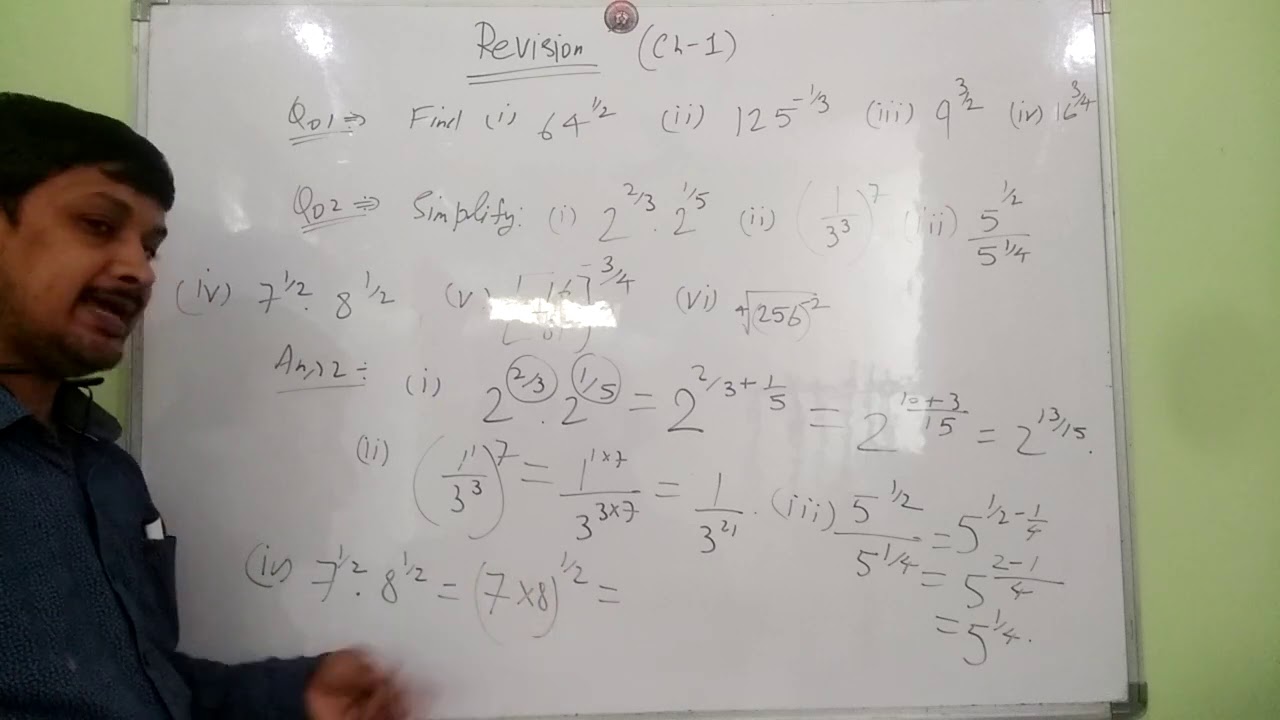 Revision (Ch-1)
Q01⇒ Find (i) 64^1/2 (ii) 125^-1/3 (iii) 9^3/2 (iv) 16^3/4
Q02⇒ Simplify: (i) 2^2/3 . 2^1/5 (ii) (1/3^3)^7 (iii) 5^1/2 / 5^1/4
(iv) 7^1/2 . 8^1/2 (v) [16/ ]^3/4 (vi) ∜(256)^2
Ans2÷ (i) 2^2/3 . 2^1/5 = 2^2/3+1/5 = 2^(10+3)/15 = 2^13/15.
(ii) (1^1/3^3)^7 = 1^1×7 / 3^3×7 = 1/3^21. (iii) 5^1/2 / 5^1/4 = 5^1/2-1/4
= 5^(2-1)/4
= 5^1/4.
(iv) 7^1/2 . 8^1/2 = (7×8)^1/2 =